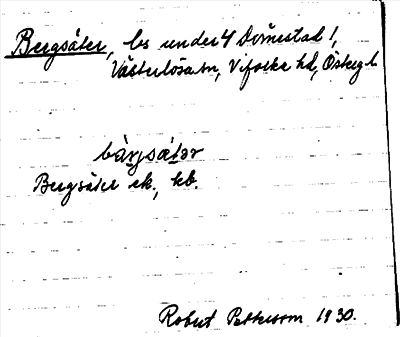 Bergsäter, ls under 4 Dömestad 1,
Västerlösa sn, Vifolka hd, Östergl
bärjsätər
Bergsäter ek., kb.
Robert Pettersson 1930.